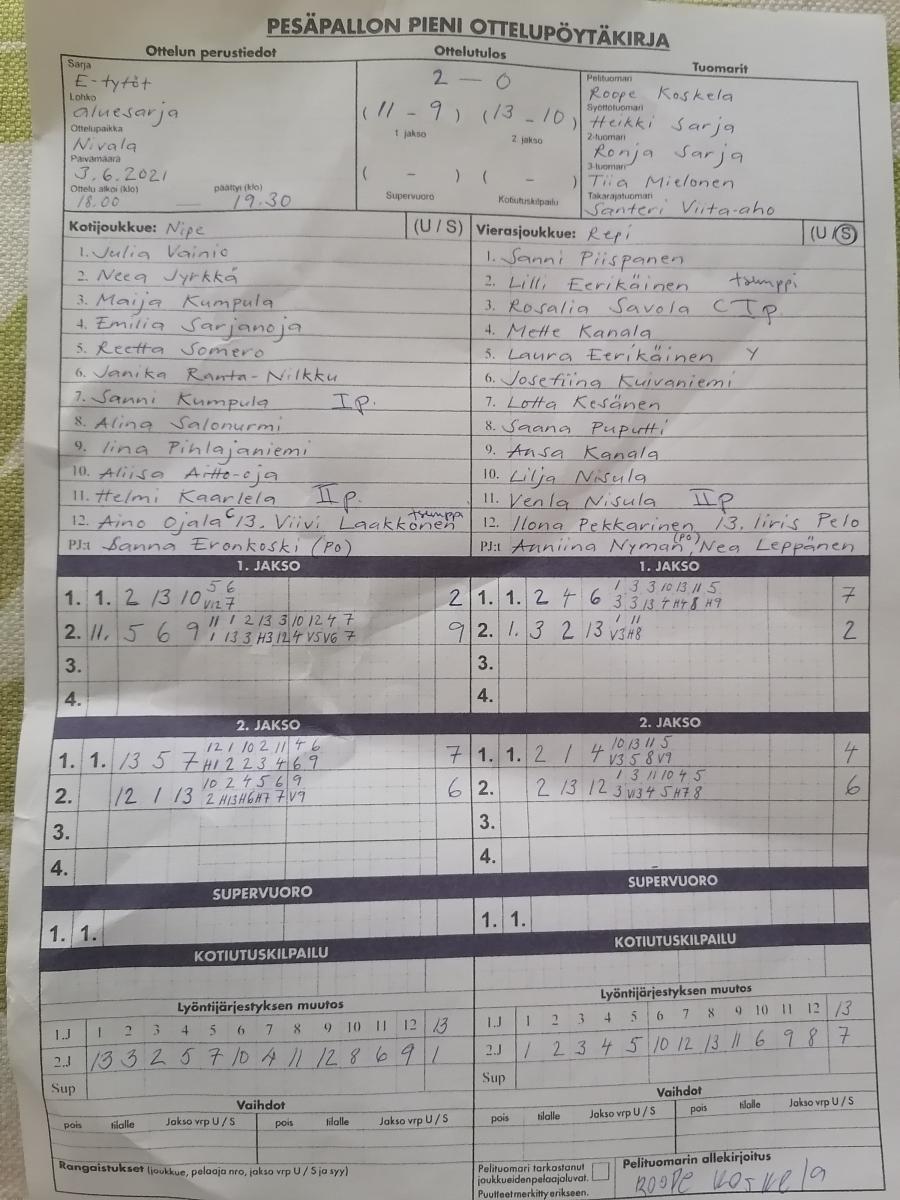 PESÄPALLON PIENI OTTELUPÖYTÄKIRJA
Ottelun perustiedot
Sarja
E-tytöt
Lohko
aluesarja
Ottelupaikka
Nivala
Päivämäärä
3.6.2021
Ottelu alkoi (klo) päättyi (klo)
18.00 — 19.30
Ottelutulos
2 — 0
(11 - 9) (13 - 10)
1 jakso 2 jakso
( - ) ( - )
Supervuoro Kotiutuskilpailu
Tuomarit
Pelituomari
Roope Koskela
Syöttötuomari
Heikki Sarja
2-tuomari
Ronja Sarja
3-tuomari
Tiia Mielonen
Takarajatuomari
Santeri Viita-aho
Kotijoukkue: Nipe (U / S)
1. Julia Vainio
2. Neea Jyrkkä
3. Maija Kumpula
4. Emilia Sarjanoja
5. Reetta Somero
6. Janika Ranta-Nilkku
7. Sanni Kumpula I p.
8. Alina Salonurmi
9. Iina Pihlajaniemi
10. Aliisa Aitto-oja
11. Helmi Kaarlela II p.
12. Aino Ojala C 13. Viivi Laakkonen tsemppi
PJ:t Sanna Eronkoski (PO)
Vierasjoukkue: Repi (U / S)
1. Sanni Piispanen
2. Lilli Eerikäinen tsemppi
3. Rosalia Savola C I p.
4. Mette Kanala
5. Laura Eerikäinen Y
6. Josefiina Kuivaniemi
7. Lotta Kesänen
8. Saana Puputti
9. Ansa Kanala
10. Lilja Nisula
11. Venla Nisula II p
12. Ilona Pekkarinen, 13. Iiris Pelo
PJ:t Anniina Nyman (PO), Nea Leppänen
1. JAKSO
5 6
1. 1. 2 13 10 V12 7 2
11 1 2 13 3 10 12 4 7
2. 11. 5 6 9 1 13 3 H3 12 4 V5 V6 7 9
3.
4.
1. JAKSO
1 3 3 10 13 11 5
1. 1. 2 4 6 3 3 13 4 H4 8 H9 7
1 11
2. 1. 3 2 13 V3 H8 2
3.
4.
2. JAKSO
12 1 10 2 11 4 6
1. 1. 13 5 7 H1 2 2 3 4 6 9 7
10 2 4 5 6 9
2. 12 1 13 2 H13 H6 H7 7 V9 6
3.
4.
2. JAKSO
10 13 11 5
1. 1. 2 1 4 V3 5 8 V9 4
1 3 11 10 4 5
2. 2 13 12 3 V13 4 5 H7 8 6
3.
4.
SUPERVUORO
1. 1.
SUPERVUORO
1. 1.
KOTIUTUSKILPAILU
KOTIUTUSKILPAILU
Lyöntijärjestyksen muutos
1.J 1 2 3 4 5 6 7 8 9 10 11 12 13
2.J 13 3 2 5 7 10 4 11 12 8 6 9 1
Sup
Lyöntijärjestyksen muutos
1.J 1 2 3 4 5 6 7 8 9 10 11 12 13
2.J 1 2 3 4 5 10 12 13 11 6 9 8 7
Sup
Vaihdot
pois tilalle Jakso vrp U / S pois tilalle Jakso vrp U / S
Vaihdot
pois tilalle Jakso vrp U / S pois tilalle Jakso vrp U / S
Rangaistukset (joukkue, pelaaja nro, jakso vrp U / S ja syy)
Pelituomari tarkastanut
joukkueidenpelaajaluvat.
Puutteet merkitty erikseen.
Pelituomarin allekirjoitus
Roope Koskela